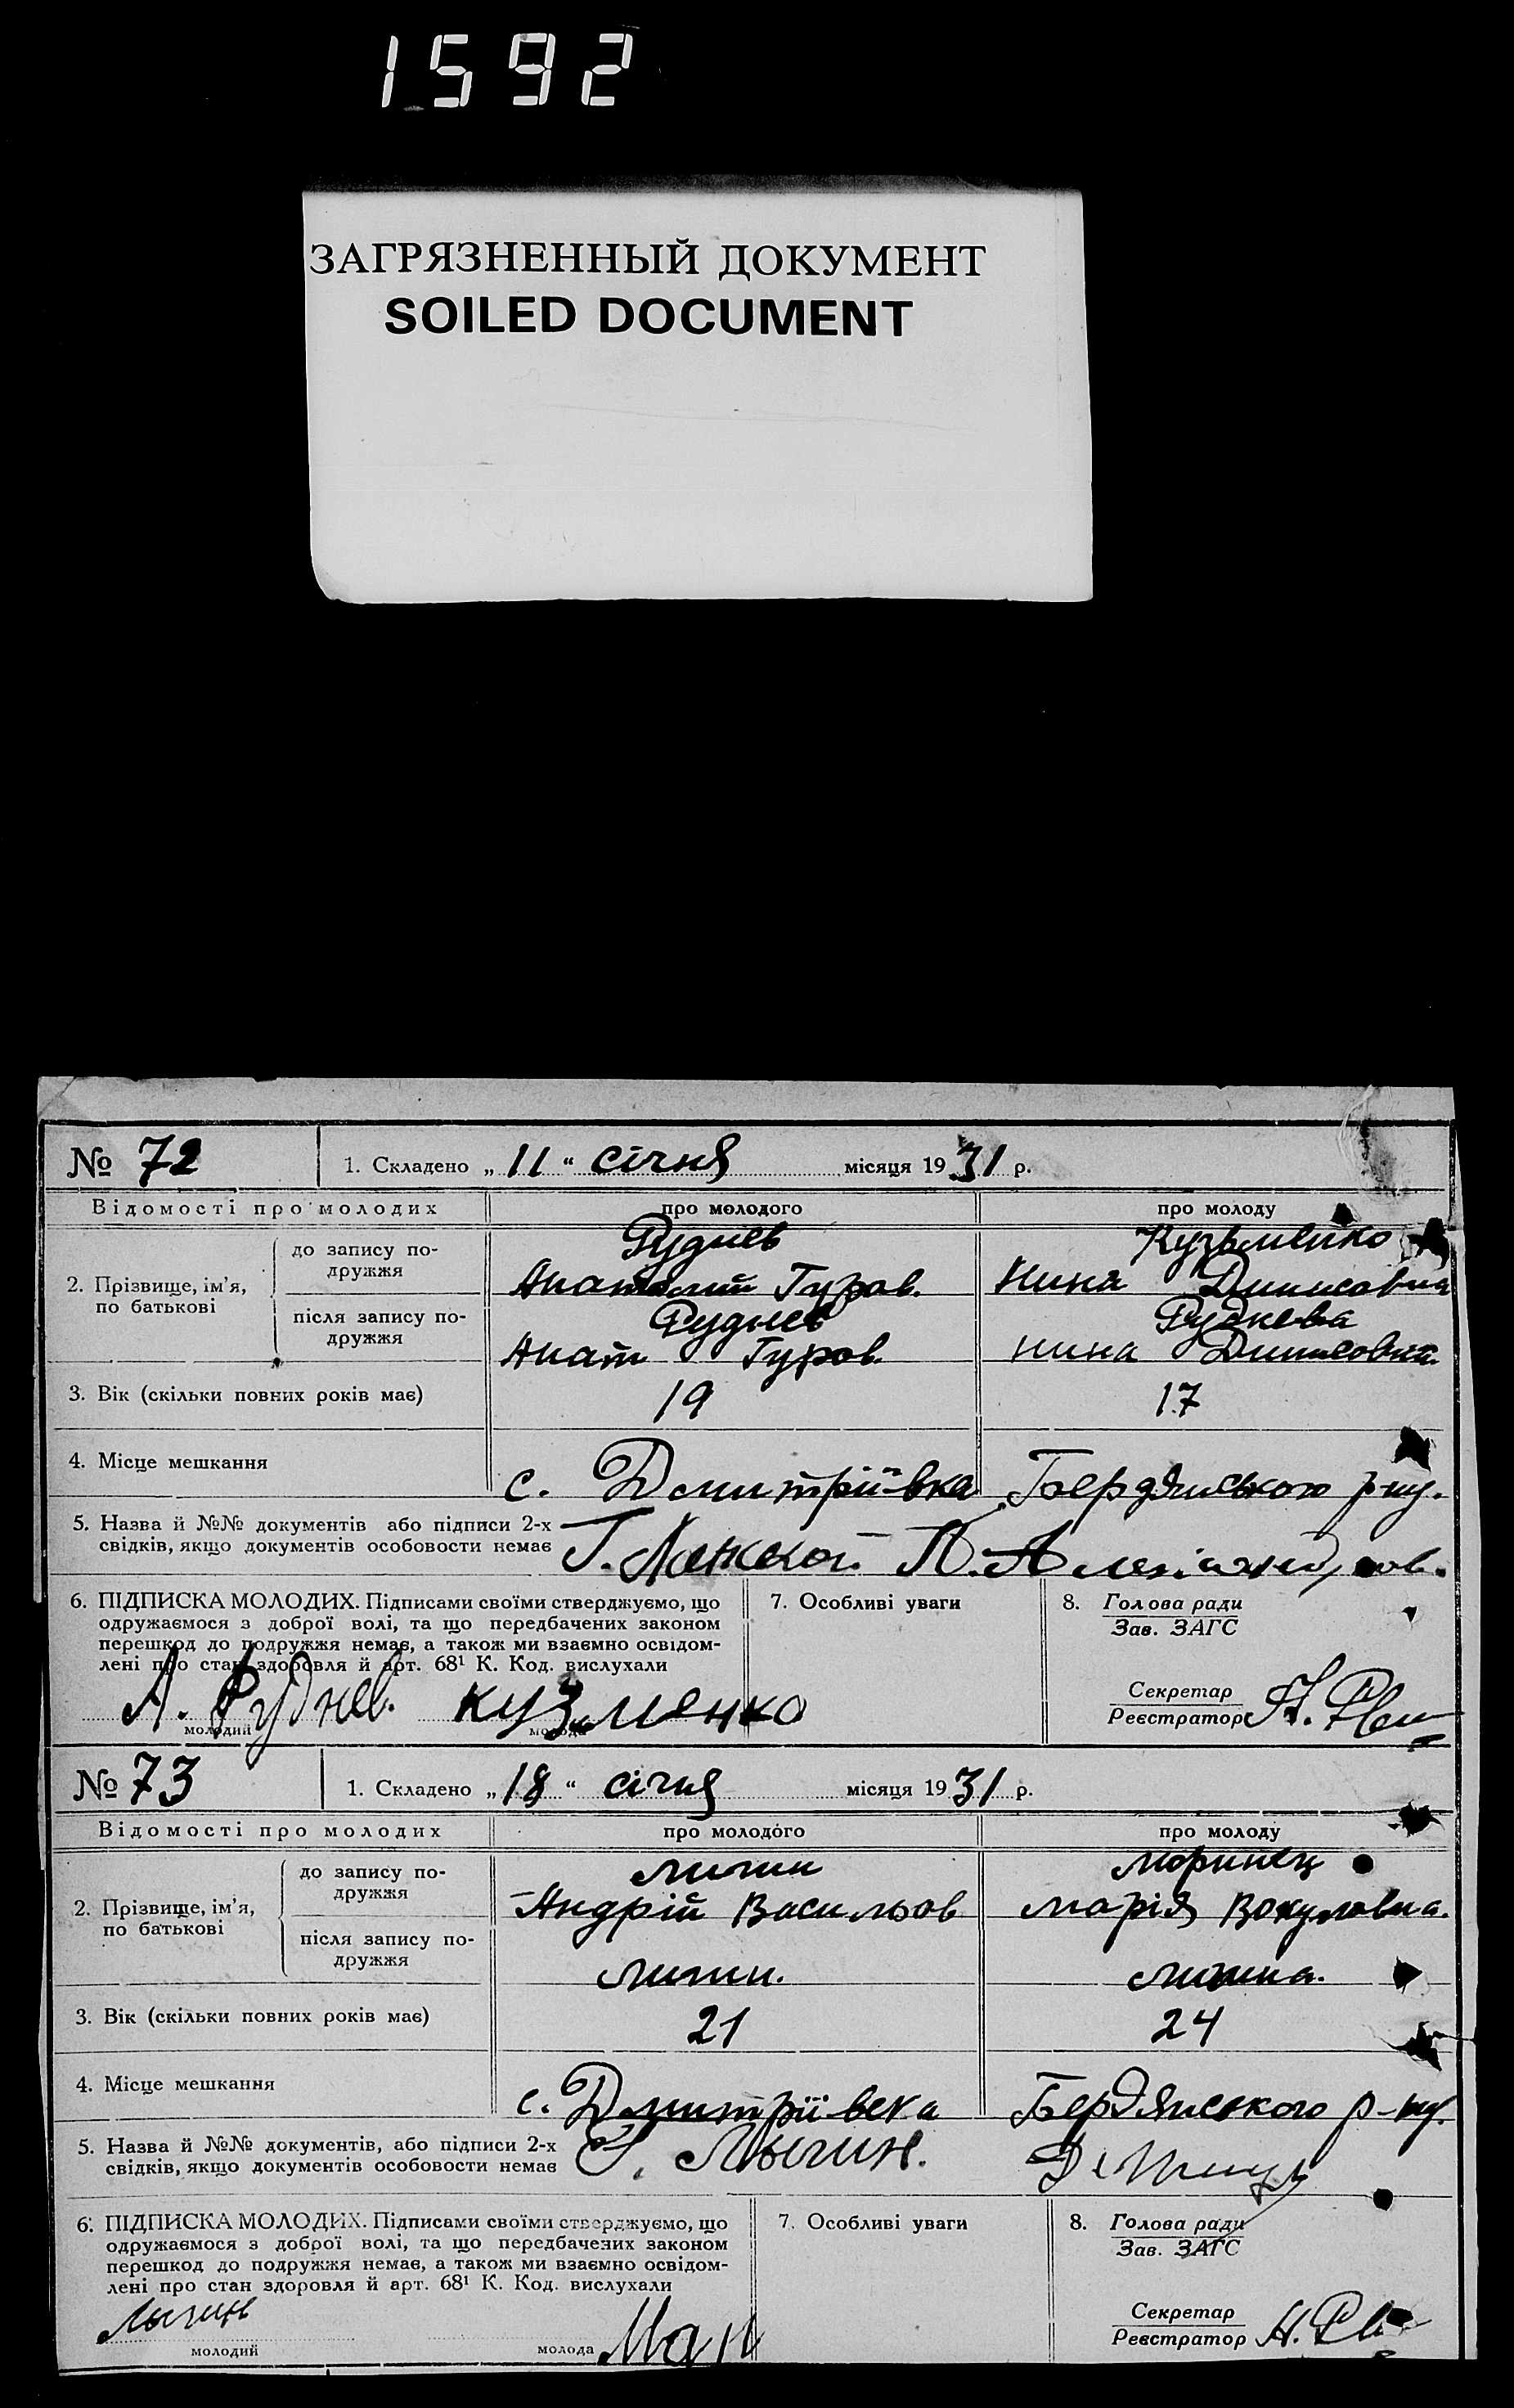 1592
ЗАГРЯЗНЕННЫЙ ДОКУМЕНТ
SOILED DOCUMENT
№ 72 1. Складено „ 11 “ січня місяця 19 31 р.
Відомості про молодих про молодого про молоду
до запису по-
дружжя
Руднев Кузьменко
2. Прізвище, ім’я,
по батькові
Анатолий Гуров. Нина Динисовна
після запису по-
дружжя
Руднев Руднева
Анат Гуров. нина
3. Вік (скільки повних років має) 19 17
4. Місце мешкання с. Дмитріївка Бердянського р-ну.
5. Назва й №№ документів або підписи 2-х
свідків, якщо документів особовости немає
Г. П.
6. ПІДПИСКА МОЛОДИХ. Підписами своїми стверджуємо, що
одружаємося з доброї волі, та що передбачених законом
перешкод до подружжя немає, а також ми взаємно освідом-
лені про стан здоровля й арт. 68¹ К. Код. вислухали
А. Руднев. кузменко
молодий молода
7. Особливі уваги
8. Голова ради
Зав. ЗАГС
Секретар
Реєстратор
№ 73 1. Складено „ 18 “ січня місяця 19 31 р.
Відомості про молодих про молодого про молоду
до запису по-
дружжя
2. Прізвище, ім’я,
по батькові
Андрій Васильов марія
після запису по-
дружжя
3. Вік (скільки повних років має) 21 24
4. Місце мешкання с. Бердянського р-ну.
5. Назва й №№ документів, або підписи 2-х
свідків, якщо документів особовости немає
6. ПІДПИСКА МОЛОДИХ. Підписами своїми стверджуємо, що
одружаємося з доброї волі, та що передбачених законом
перешкод до подружжя немає, а також ми взаємно освідом-
лені про стан здоровля й арт. 68¹ К. Код. вислухали
молодий молода
7. Особливі уваги
8. Голова ради
Зав. ЗАГС
Секретар
Реєстратор